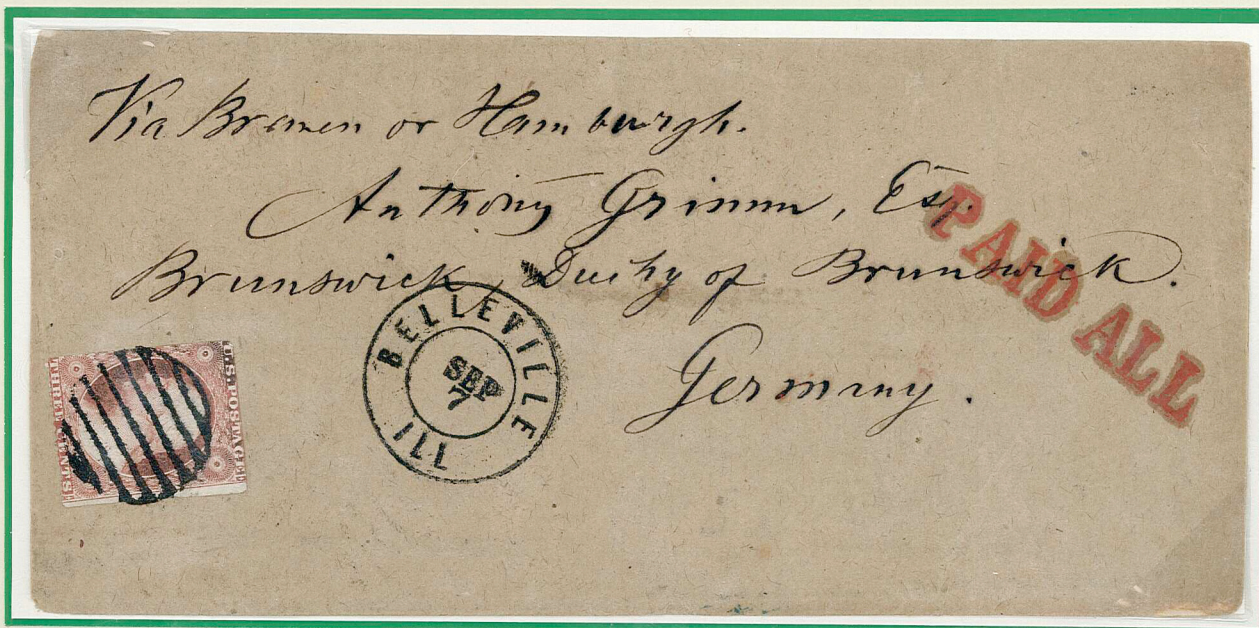 Via Bremen or Hamburgh.
Anthony Grimm, Esq.
Brunswick, Duchy of Brunswick.
Germany.
PAID ALL
BELLEVILLE
SEP
7
ILL
U.S. POSTAGE
THREE CENTS